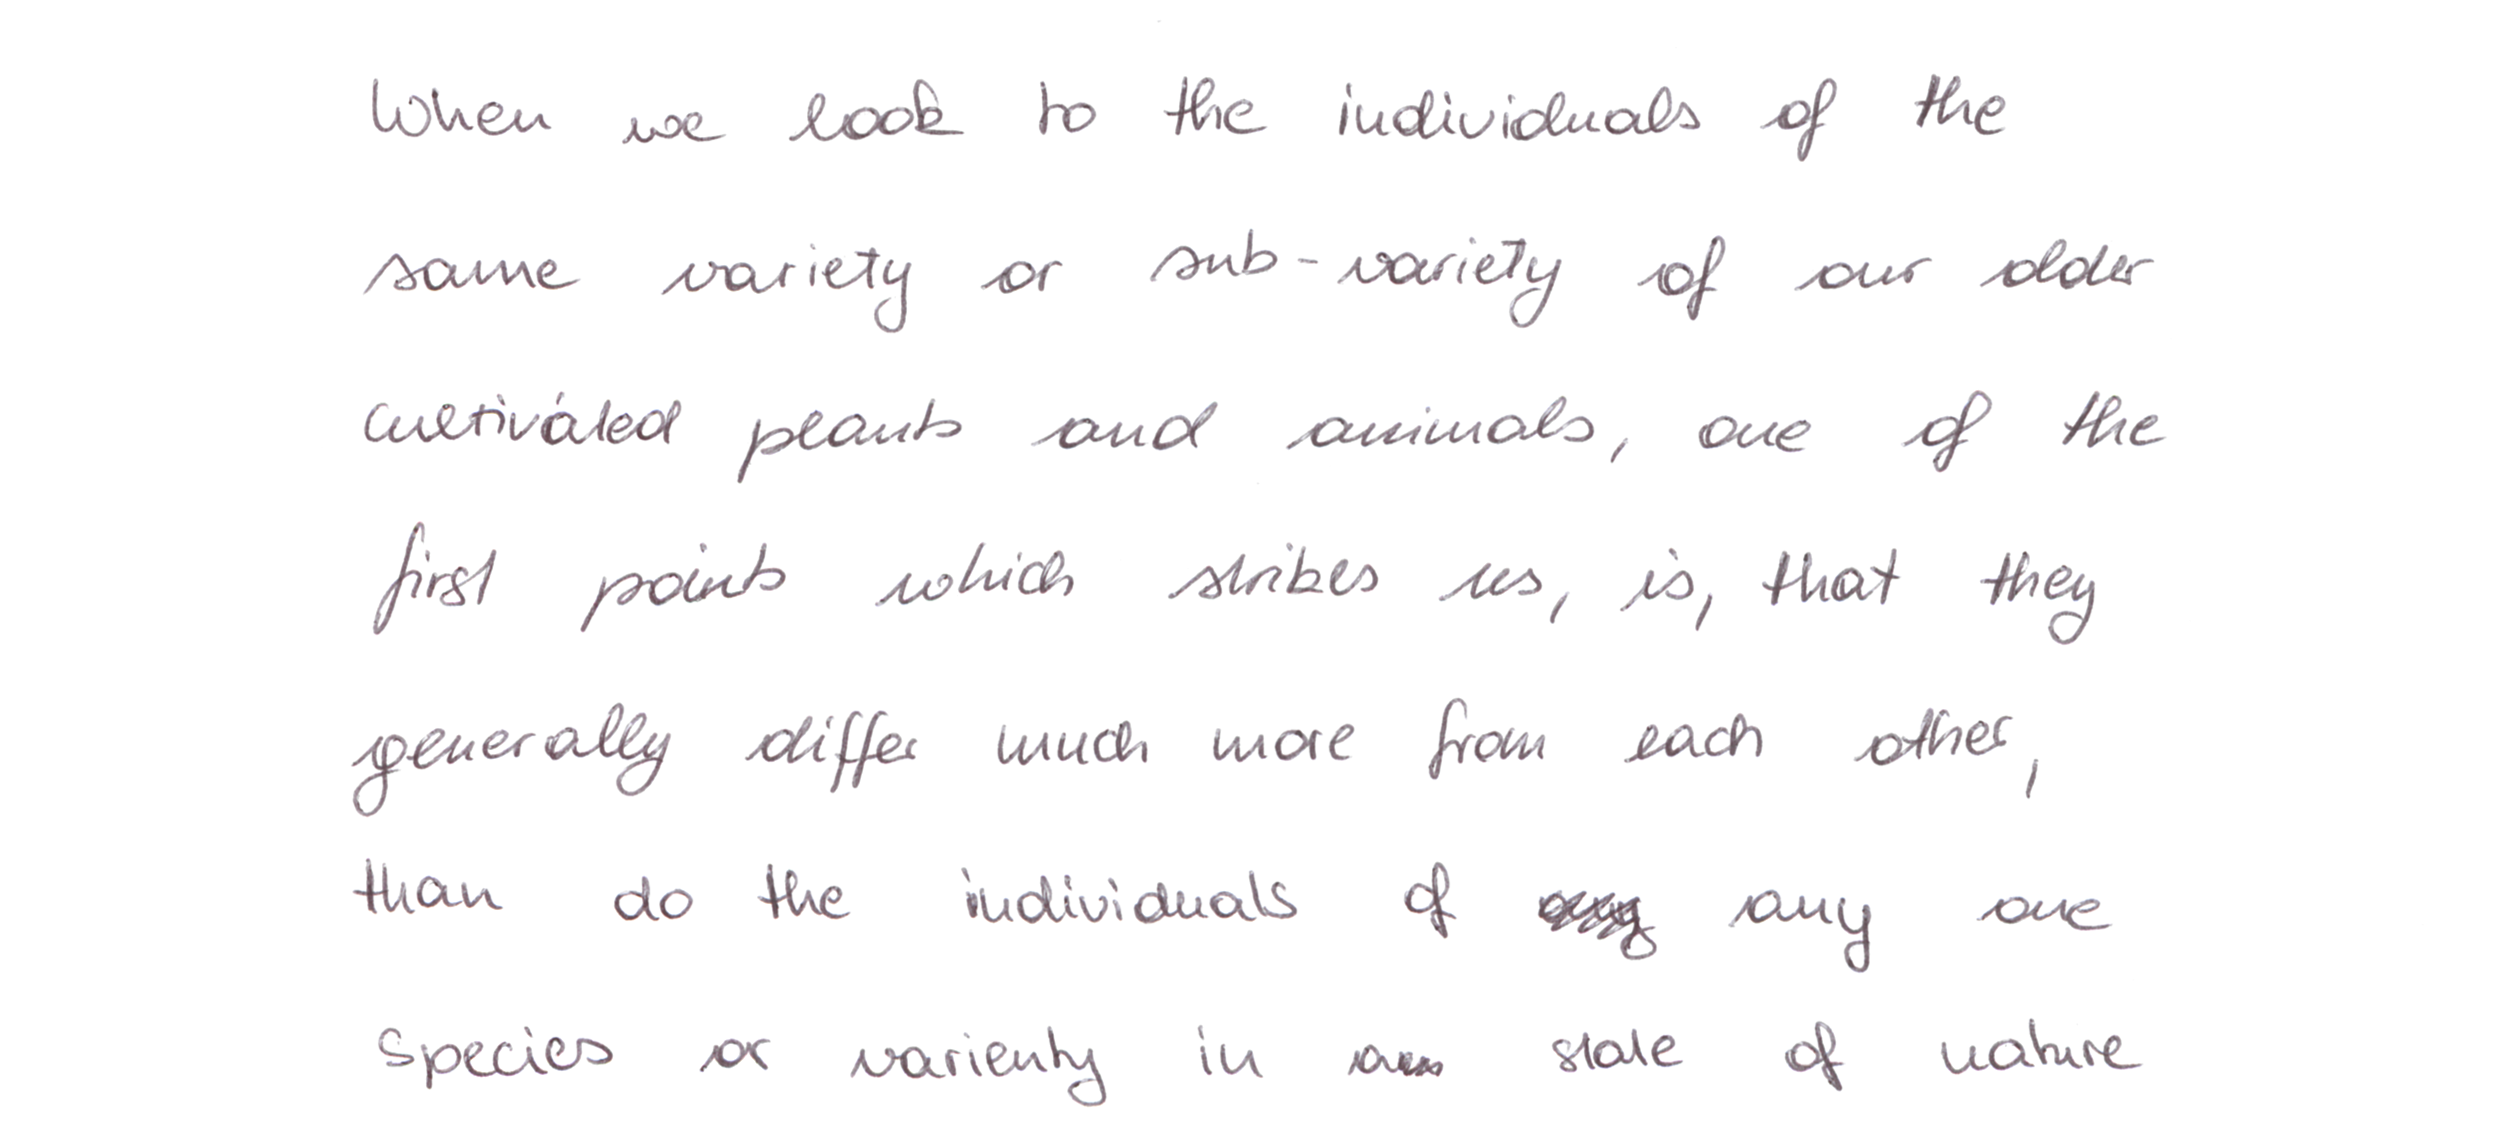 When we look to the individuals of the
same variety or sub-variety of our older
cultivated plants and animals, one of the
first points which strikes us, is, that they
generally differ much more from each other,
than do the individuals of any one
species or varienty in a state of nature